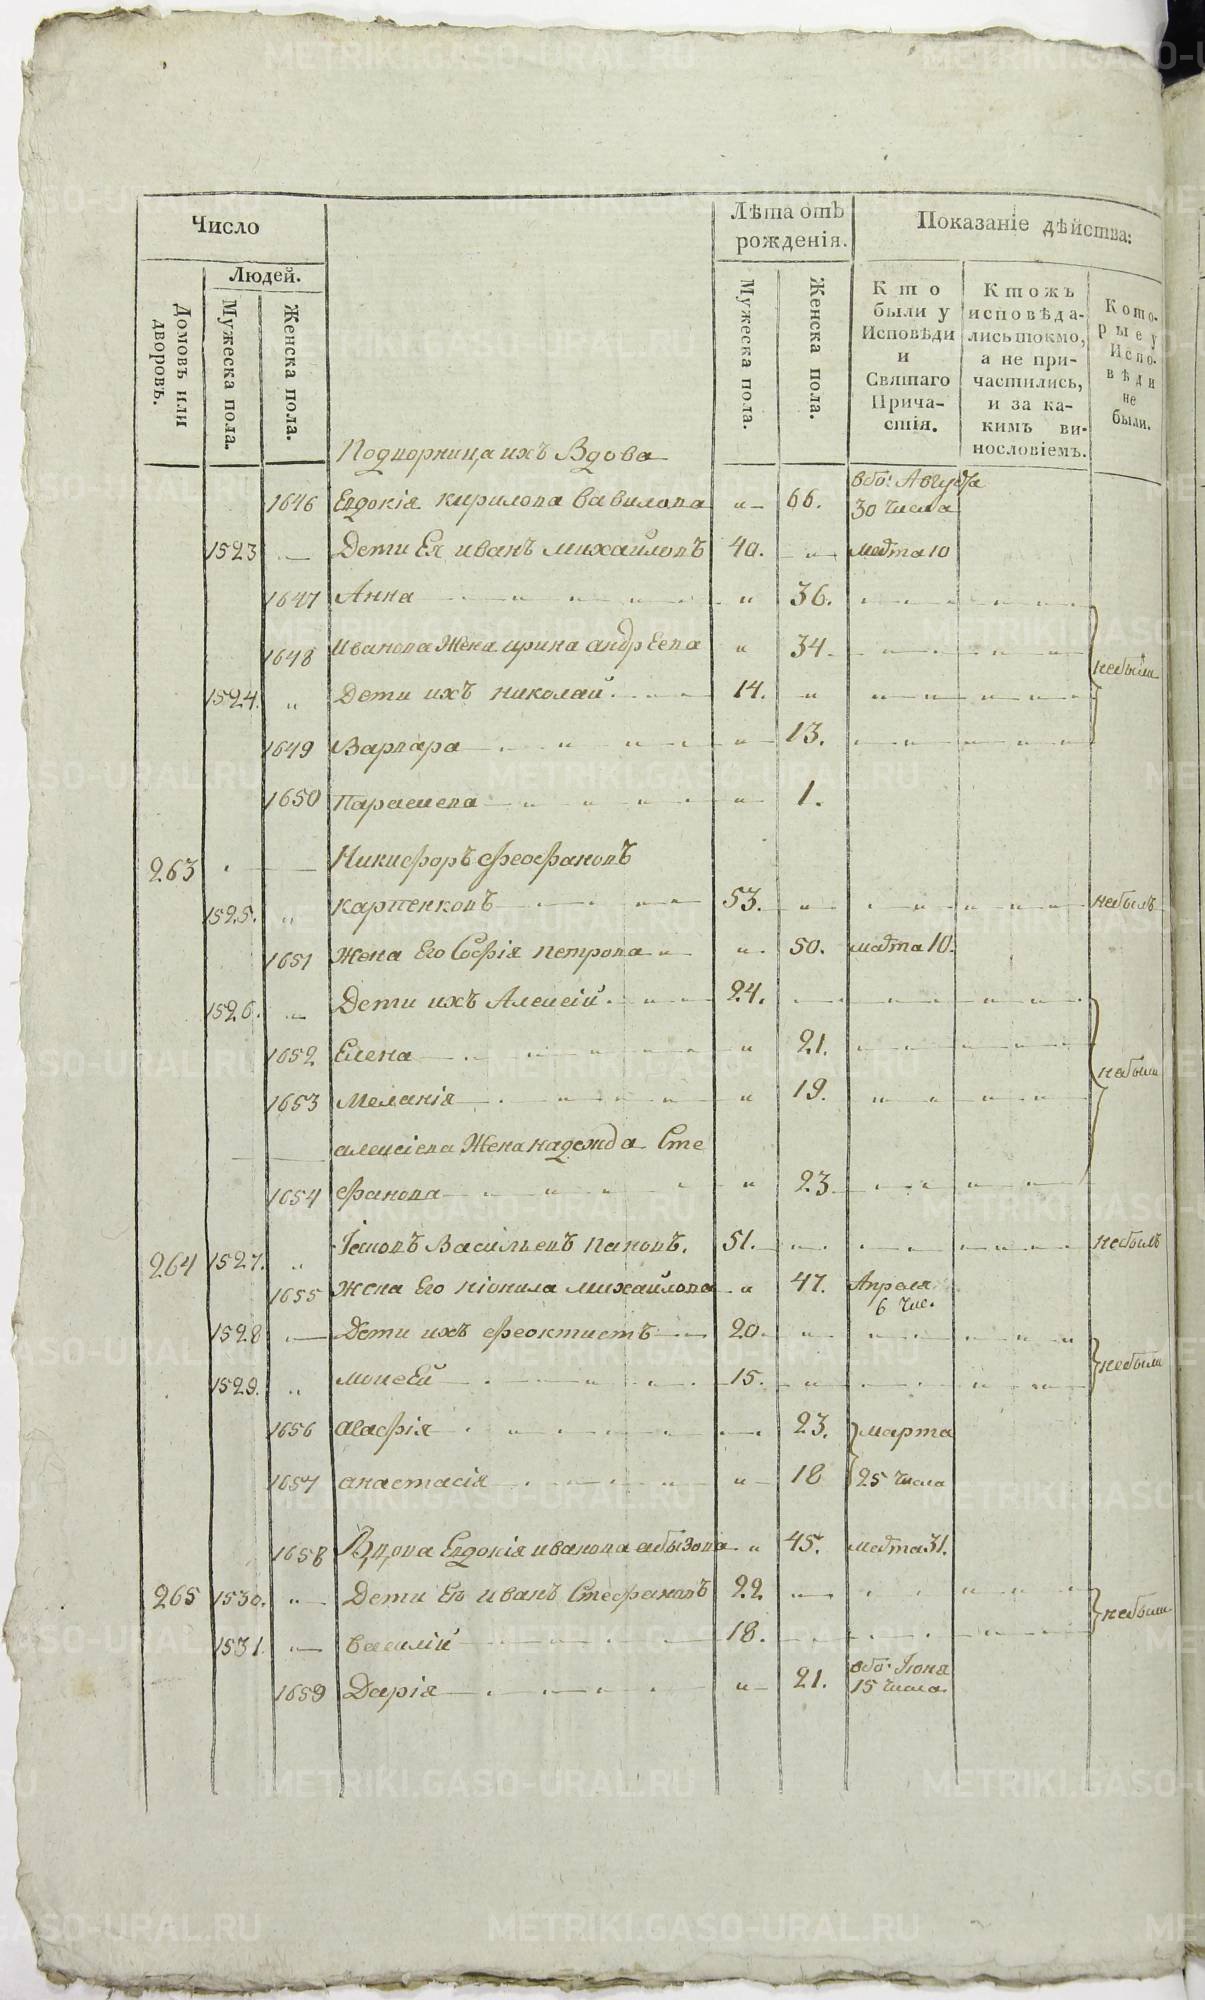 Число
Лѣта отъ рожденія.
Показаніе дѣйства:
Людей.
Домовъ или дворовъ.
Мужеска пола.
Женска пола.
Мужеска пола.
Женска пола.
Кто были у Исповѣди и Святаго Причастія.
Ктожъ исповѣдались токмо, а не причастились, и за какимъ винословіемъ.
Которые у Исповѣди не были.
Подворница ихъ Вдова
1646 Евдокія кирилова вавилова " 66. Августа 30 числа
1523 — Дети Ея иванъ михайловъ 40. " 10
1647 Анна " 36.
1648 иванова Жена ирина андрЕева " 34
небыли
1524. " Дети ихъ николай 14. "
1649 Варвара " 13.
1650 Параскева " 1.
263 Никифоръ феофановъ
1525. " карпенковъ 53. " небылъ
1651 Жена Его Софія петрова " 50. 10.
1526. " Дети ихъ Алексій 24.
1652 Елена " 21.
небыли
1653 Меланія " 19.
алексіева Жена надежда Сте
1654 фанова " 23
264 1527. " Іаковъ Васильевъ пановъ. 51. небылъ
1655 Жена Его нионила михайлова " 47. Апреля 6 чис.
1528 — Дети ихъ феоктистъ 20. "
небыли
1529. " моисей 15. "
1656 агафія 23. марта
1657 анастасія " 18 25 числа
1658 Вдова Евдокія иванова абызова " 45. 31.
265 1530. " Дети Ея иванъ Стефановъ 22
небыли
1531. " василій 18.
1659 Дарія " 21. Іюня 15 числа
METRIKI.GASO-URAL.RU